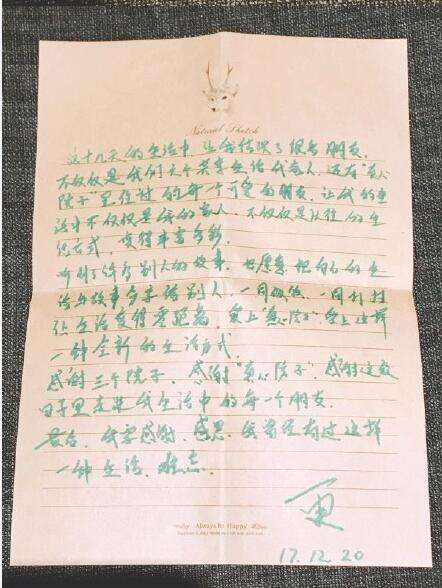 Natural Sketch
这十九天的生活中，让我结识了很多朋友，
不仅仅是我们六个共享生活我家人，还有真心
院子里经过的每一个可爱的朋友，让我的生
活中不仅仅是我的家人，不仅仅是以往的生
活方式，变得丰富多彩。
听到了许多别人的故事，也愿意把自己的生
活与故事分享给别人，一同做饭，一同
让生活变得 爱上“真心院子”爱上这样
一种全新的生活方式。
感谢三个院子，感谢“真心院子”，感谢这段
日子里走进我生活中的每一个朋友。
最后，我要感谢，感恩，我曾经有过这样
一种生活，难忘。
Always be Happy
17.12.20